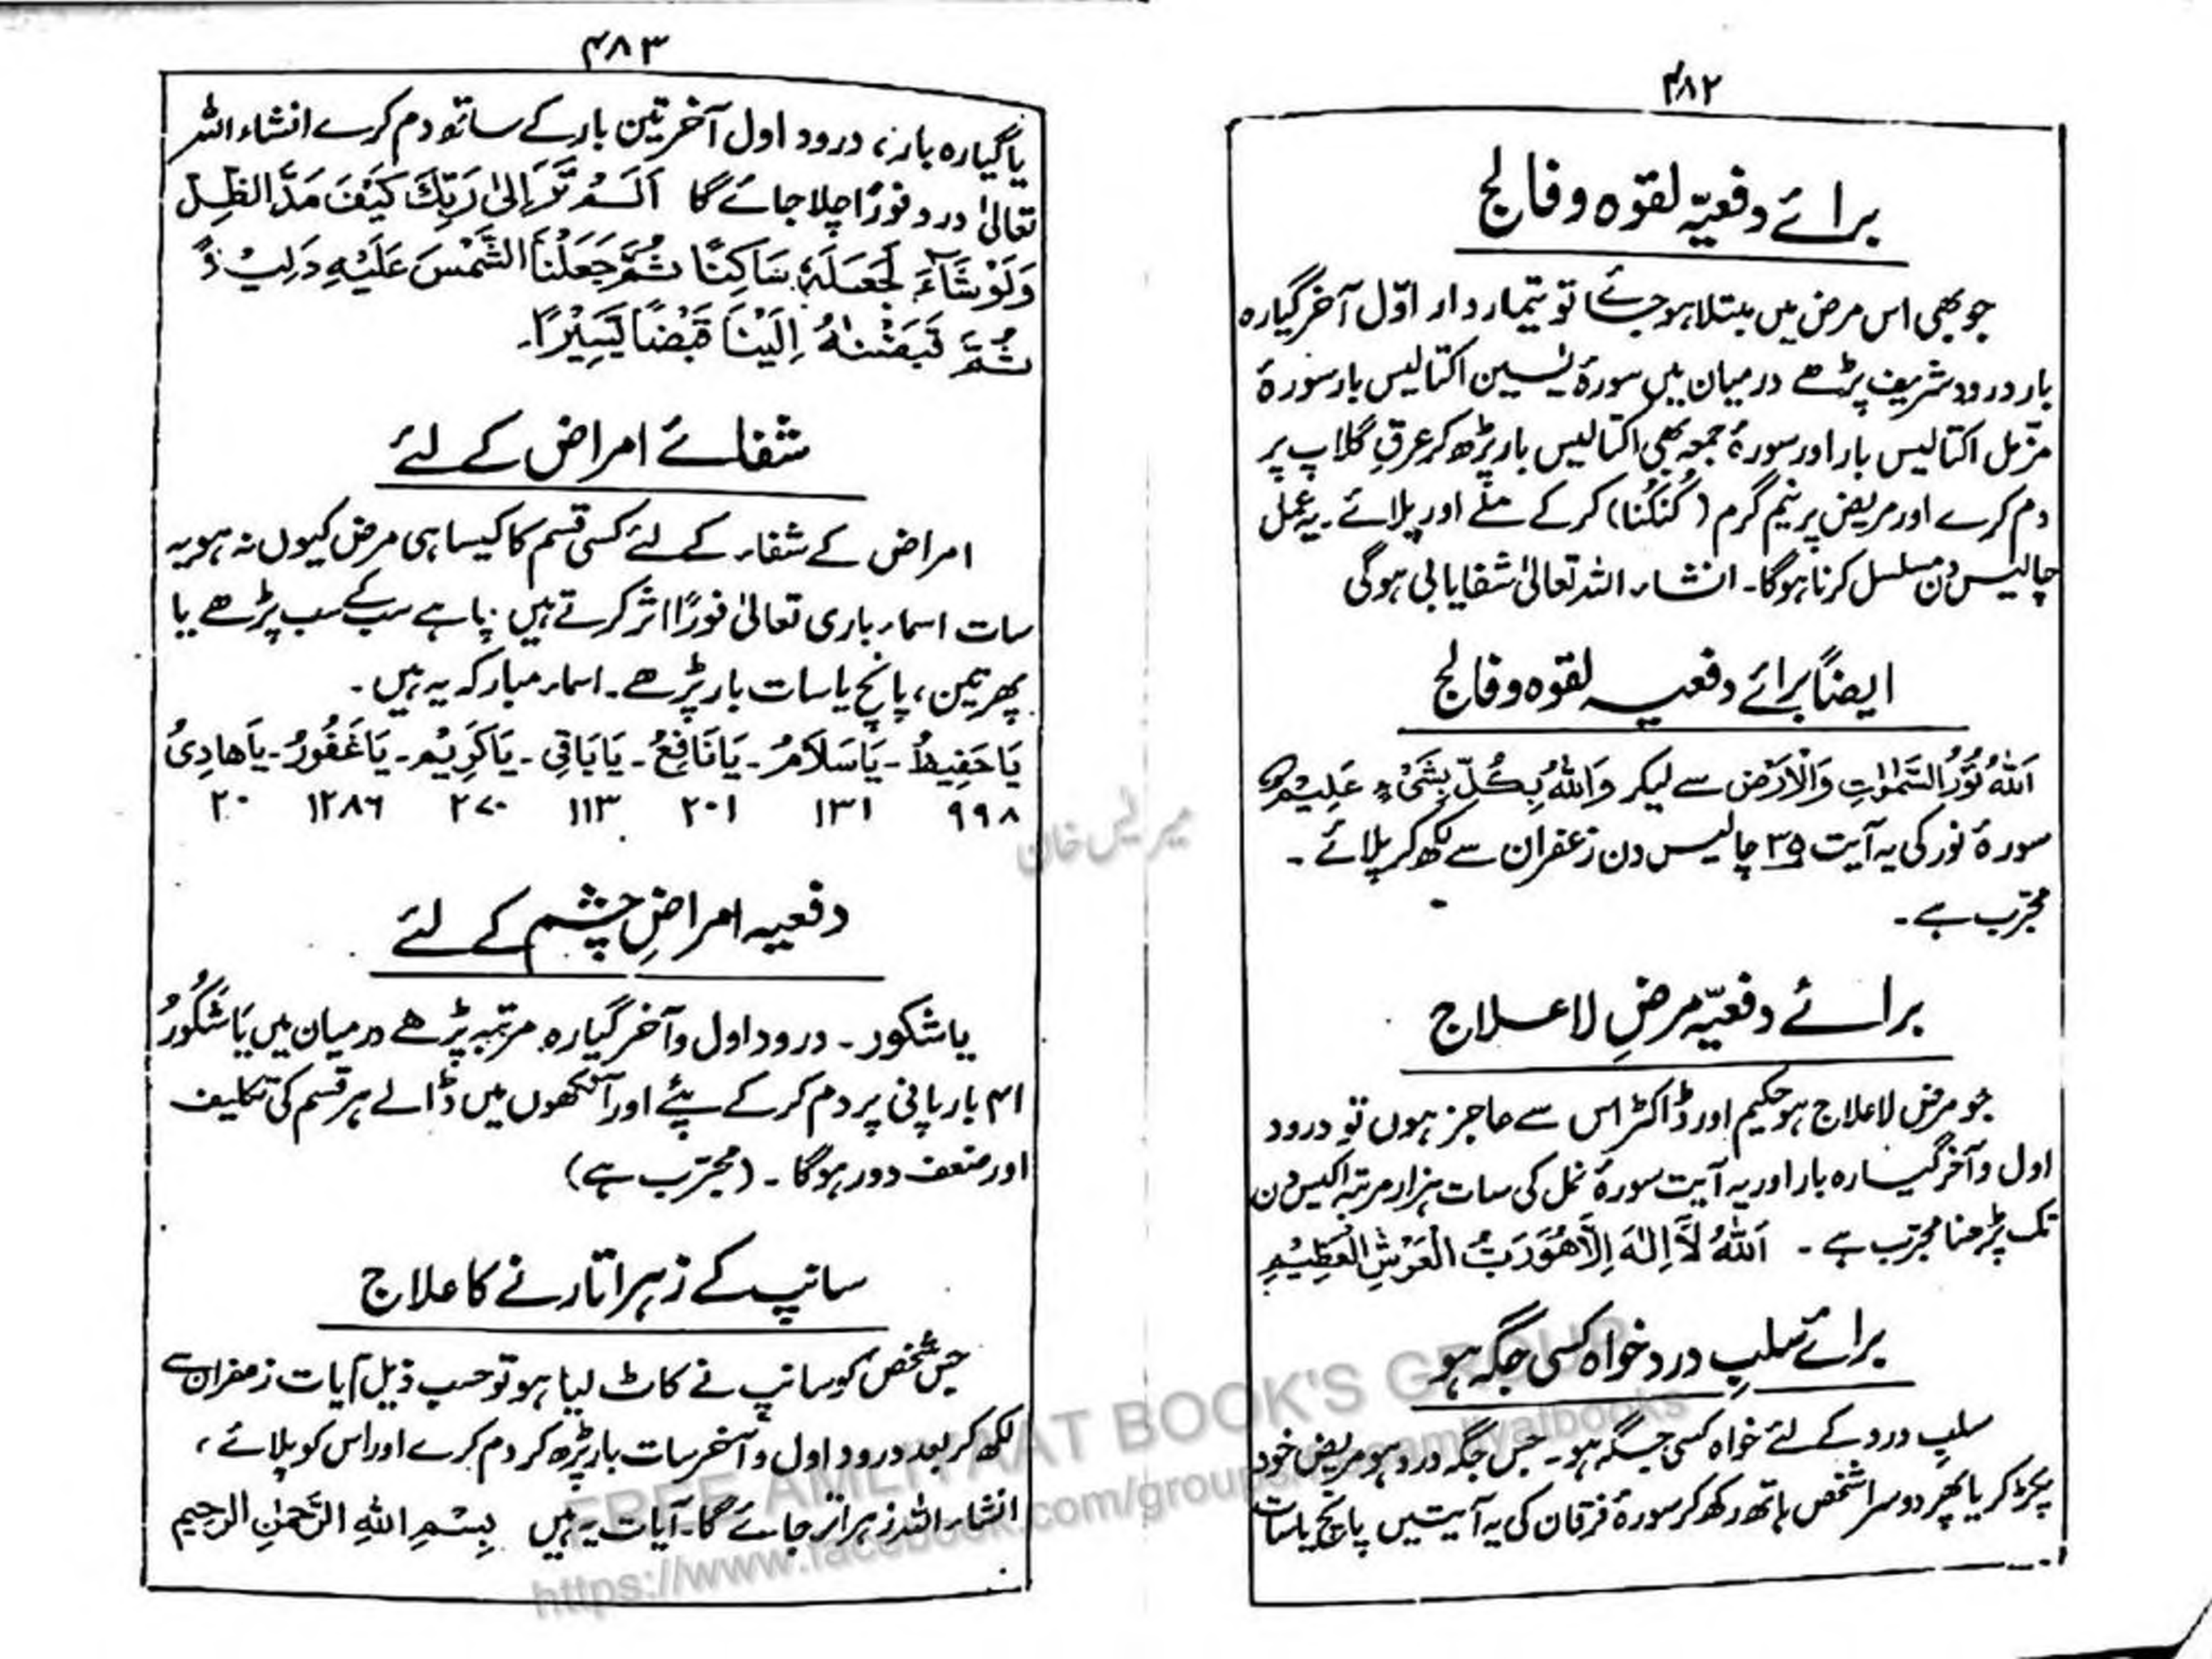 ۴۸۲
برائے دفعیّہ لقوہ و فالج
جو بھی اس مرض میں مبتلا ہو جائے تو تیمار دار اوّل آخر گیارہ
بار درود شریف پڑھے درمیان میں سورۂ یٰسین اکتالیس بار سورۂ
مزّمل اکتالیس بار اور سورۂ جمعہ بھی اکتالیس بار پڑھ کر عرقِ گلاب پر
دم کرے اور مریض پر نیم گرم (کُنکُنا) کر کے ملے اور پلائے۔ یہ عمل
چالیس دن مسلسل کرنا ہوگا۔ انشاء اللہ تعالیٰ شفایابی ہوگی
ایضاً برائے دفعیہ لقوہ و فالج
اَللّٰہُ نُوْرُ السَّمٰوٰتِ وَالْاَرْضِ سے لیکر وَاللّٰہُ بِکُلِّ شَیْءٍ عَلِیْمٌ
سورۂ نور کی یہ آیت ۳۵ چالیس دن زعفران سے لکھ کر پلائے۔
مجرّب ہے۔
برائے دفعیّہ مرضِ لا علاج
جو مرض لا علاج ہو حکیم اور ڈاکٹر اس سے عاجز ہوں تو درود
اول و آخر گیارہ بار اور یہ آیت سورۂ نمل کی سات ہزار مرتبہ اکیس دن
تک پڑھنا مجرّب ہے۔ اَللّٰہُ لَآ اِلٰہَ اِلَّا ھُوَ رَبُّ الْعَرْشِ الْعَظِیْمِ
برائے سلبِ درد خواہ کسی جگہ ہو
سلبِ درد کے لئے خواہ کسی جگہ ہو۔ جس جگہ درد ہو مریض خود
پکڑ کر یا پھر دوسرا شخص ہاتھ رکھ کر سورۂ فرقان کی یہ آیتیں پانچ یا سات
۴۸۳
یا گیارہ بار، درود اول آخر تین بار کے ساتھ دم کرے انشاء اللہ
تعالیٰ درد فوراً چلا جائے گا اَلَمْ تَرَ اِلٰی رَبِّكَ كَیْفَ مَدَّ الظِّلَّ
وَلَوْ شَآءَ لَجَعَلَہٗ سَاكِنًا ثُمَّ جَعَلْنَا الشَّمْسَ عَلَیْهِ دَلِیْلًا
ثُمَّ قَبَضْنٰهُ اِلَیْنَا قَبْضًا یَّسِیْرًا۔
شفائے امراض کے لئے
امراض کے شفاء کے لئے کسی قسم کا کیسا ہی مرض کیوں نہ ہو یہ
سات اسماء باری تعالیٰ فوراً اثر کرتے ہیں چاہے سب کے سب پڑھے یا
پھر تین، پانچ یا سات بار پڑھے۔ اسماء مبارکہ یہ ہیں۔
یَا حَفِیْظُ۔ یَا سَلَامُ۔ یَا نَافِعُ۔ یَا بَاقِی۔ یَا كَرِیْمُ۔ یَا غَفُوْرُ۔ یَا ھَادِیُ
۹۹۸ ۱۳۱ ۲۰۱ ۱۱۳ ۲۷۰ ۱۲۸۶ ۲۰
دفعیہ امراضِ چشم کے لئے
یا شکور۔ درود اول و آخر گیارہ مرتبہ پڑھے درمیان میں یَا شَكُوْرُ
۴۱ بار پانی پر دم کر کے پئے اور آنکھوں میں ڈالے ہر قسم کی تکلیف
اور ضعف دور ہوگا۔ (مجرّب ہے)
سانپ کے زہر اتارنے کا علاج
جس شخص کو سانپ نے کاٹ لیا ہو تو حسب ذیل آیات زعفران سے
لکھ کر بعد درود اول و آخر سات بار پڑھ کر دم کرے اور اس کو پلائے،
انشاء اللہ زہر اتر جائے گا۔ آیات یہ ہیں بِسْمِ اللّٰهِ الرَّحْمٰنِ الرحیم
FREE AMLIYAAT BOOK'S GROUP
https://www.facebook.com/groups/freeamliyatbooks